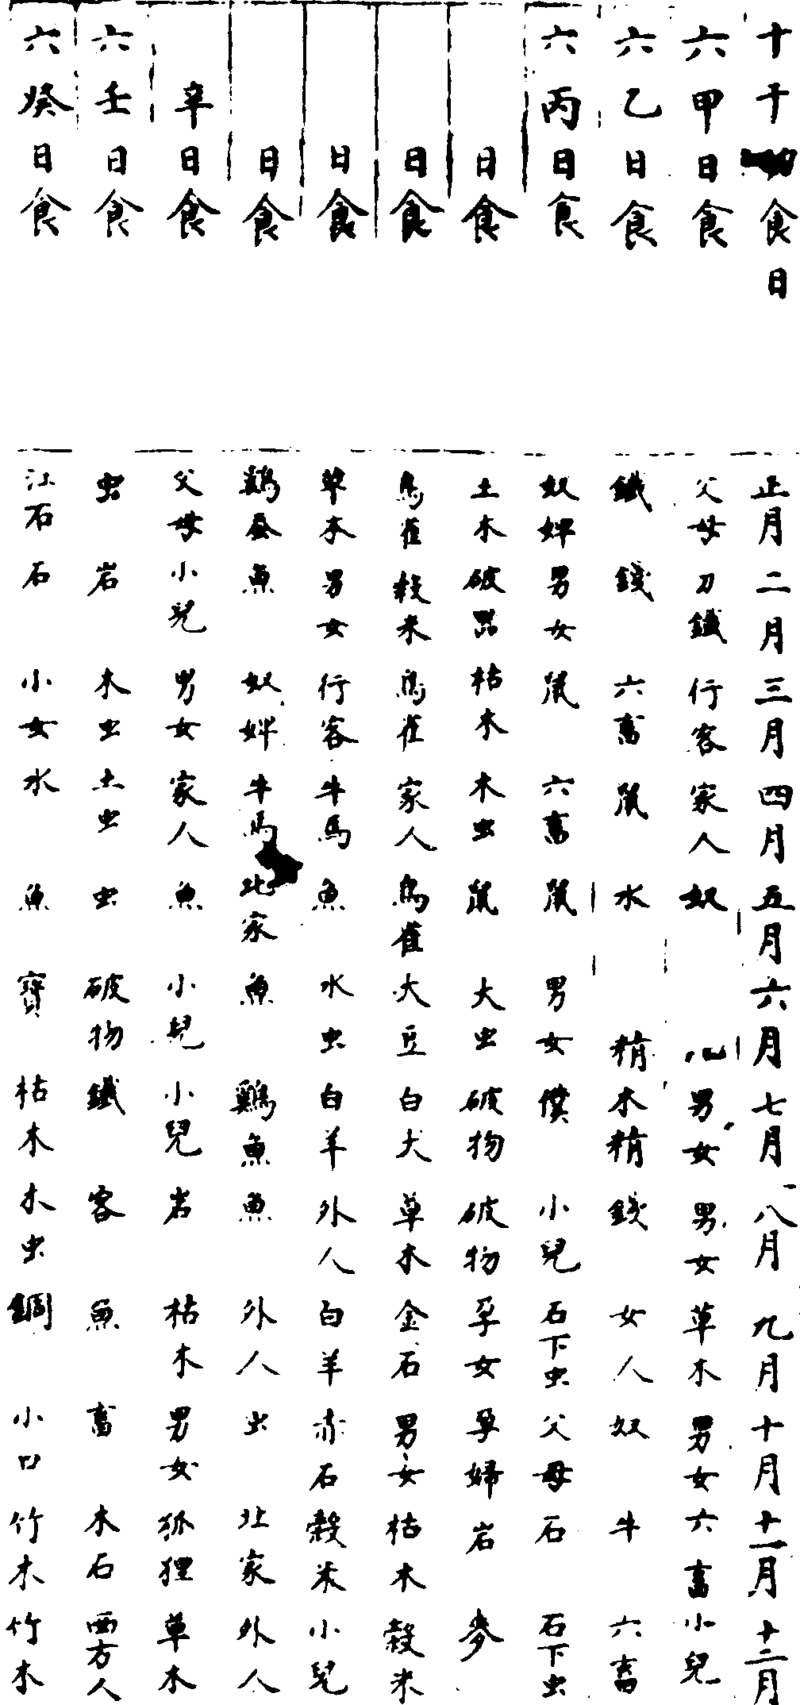 十干食日 正月 二月 三月 四月 五月 六月 七月 八月 九月 十月 十一月 十二月
六甲日食 父母 刀鐵 行客 家人 奴 男女 男女 草木 男女 六畜 小兒
六乙日食 鐵 錢 六畜 鼠 水 精 木精 錢 女人 奴 牛 六畜
六丙日食 奴婢 男女 鼠 六畜 鼠 男女 僕 小兒 石下虫 父母 石 石下虫
日食 土木 破器 枯木 木虫 鼠 大虫 破物 破物 孕女 孕婦 岩 麥
日食 鳥雀 穀米 鳥雀 家人 鳥雀 大豆 白犬 草木 金石 男女 枯木 穀米
日食 草木 男女 行客 牛馬 魚 水虫 白羊 外人 白羊 赤石 穀米 小兒
日食 鷄蚕 魚 奴婢 牛馬 北家 魚 鷄魚 魚 外人 虫 北家 外人
辛日食 父母 小兒 男女 家人 魚 小兒 小兒 岩 枯木 男女 狐狸 草木
六壬日食 虫 岩 木虫 土虫 虫 破物 鐵 客 魚 畜 木石 西方人
六癸日食 江石 石 小女 水 魚 寶 枯木 木虫 銅 小口 竹木 竹木